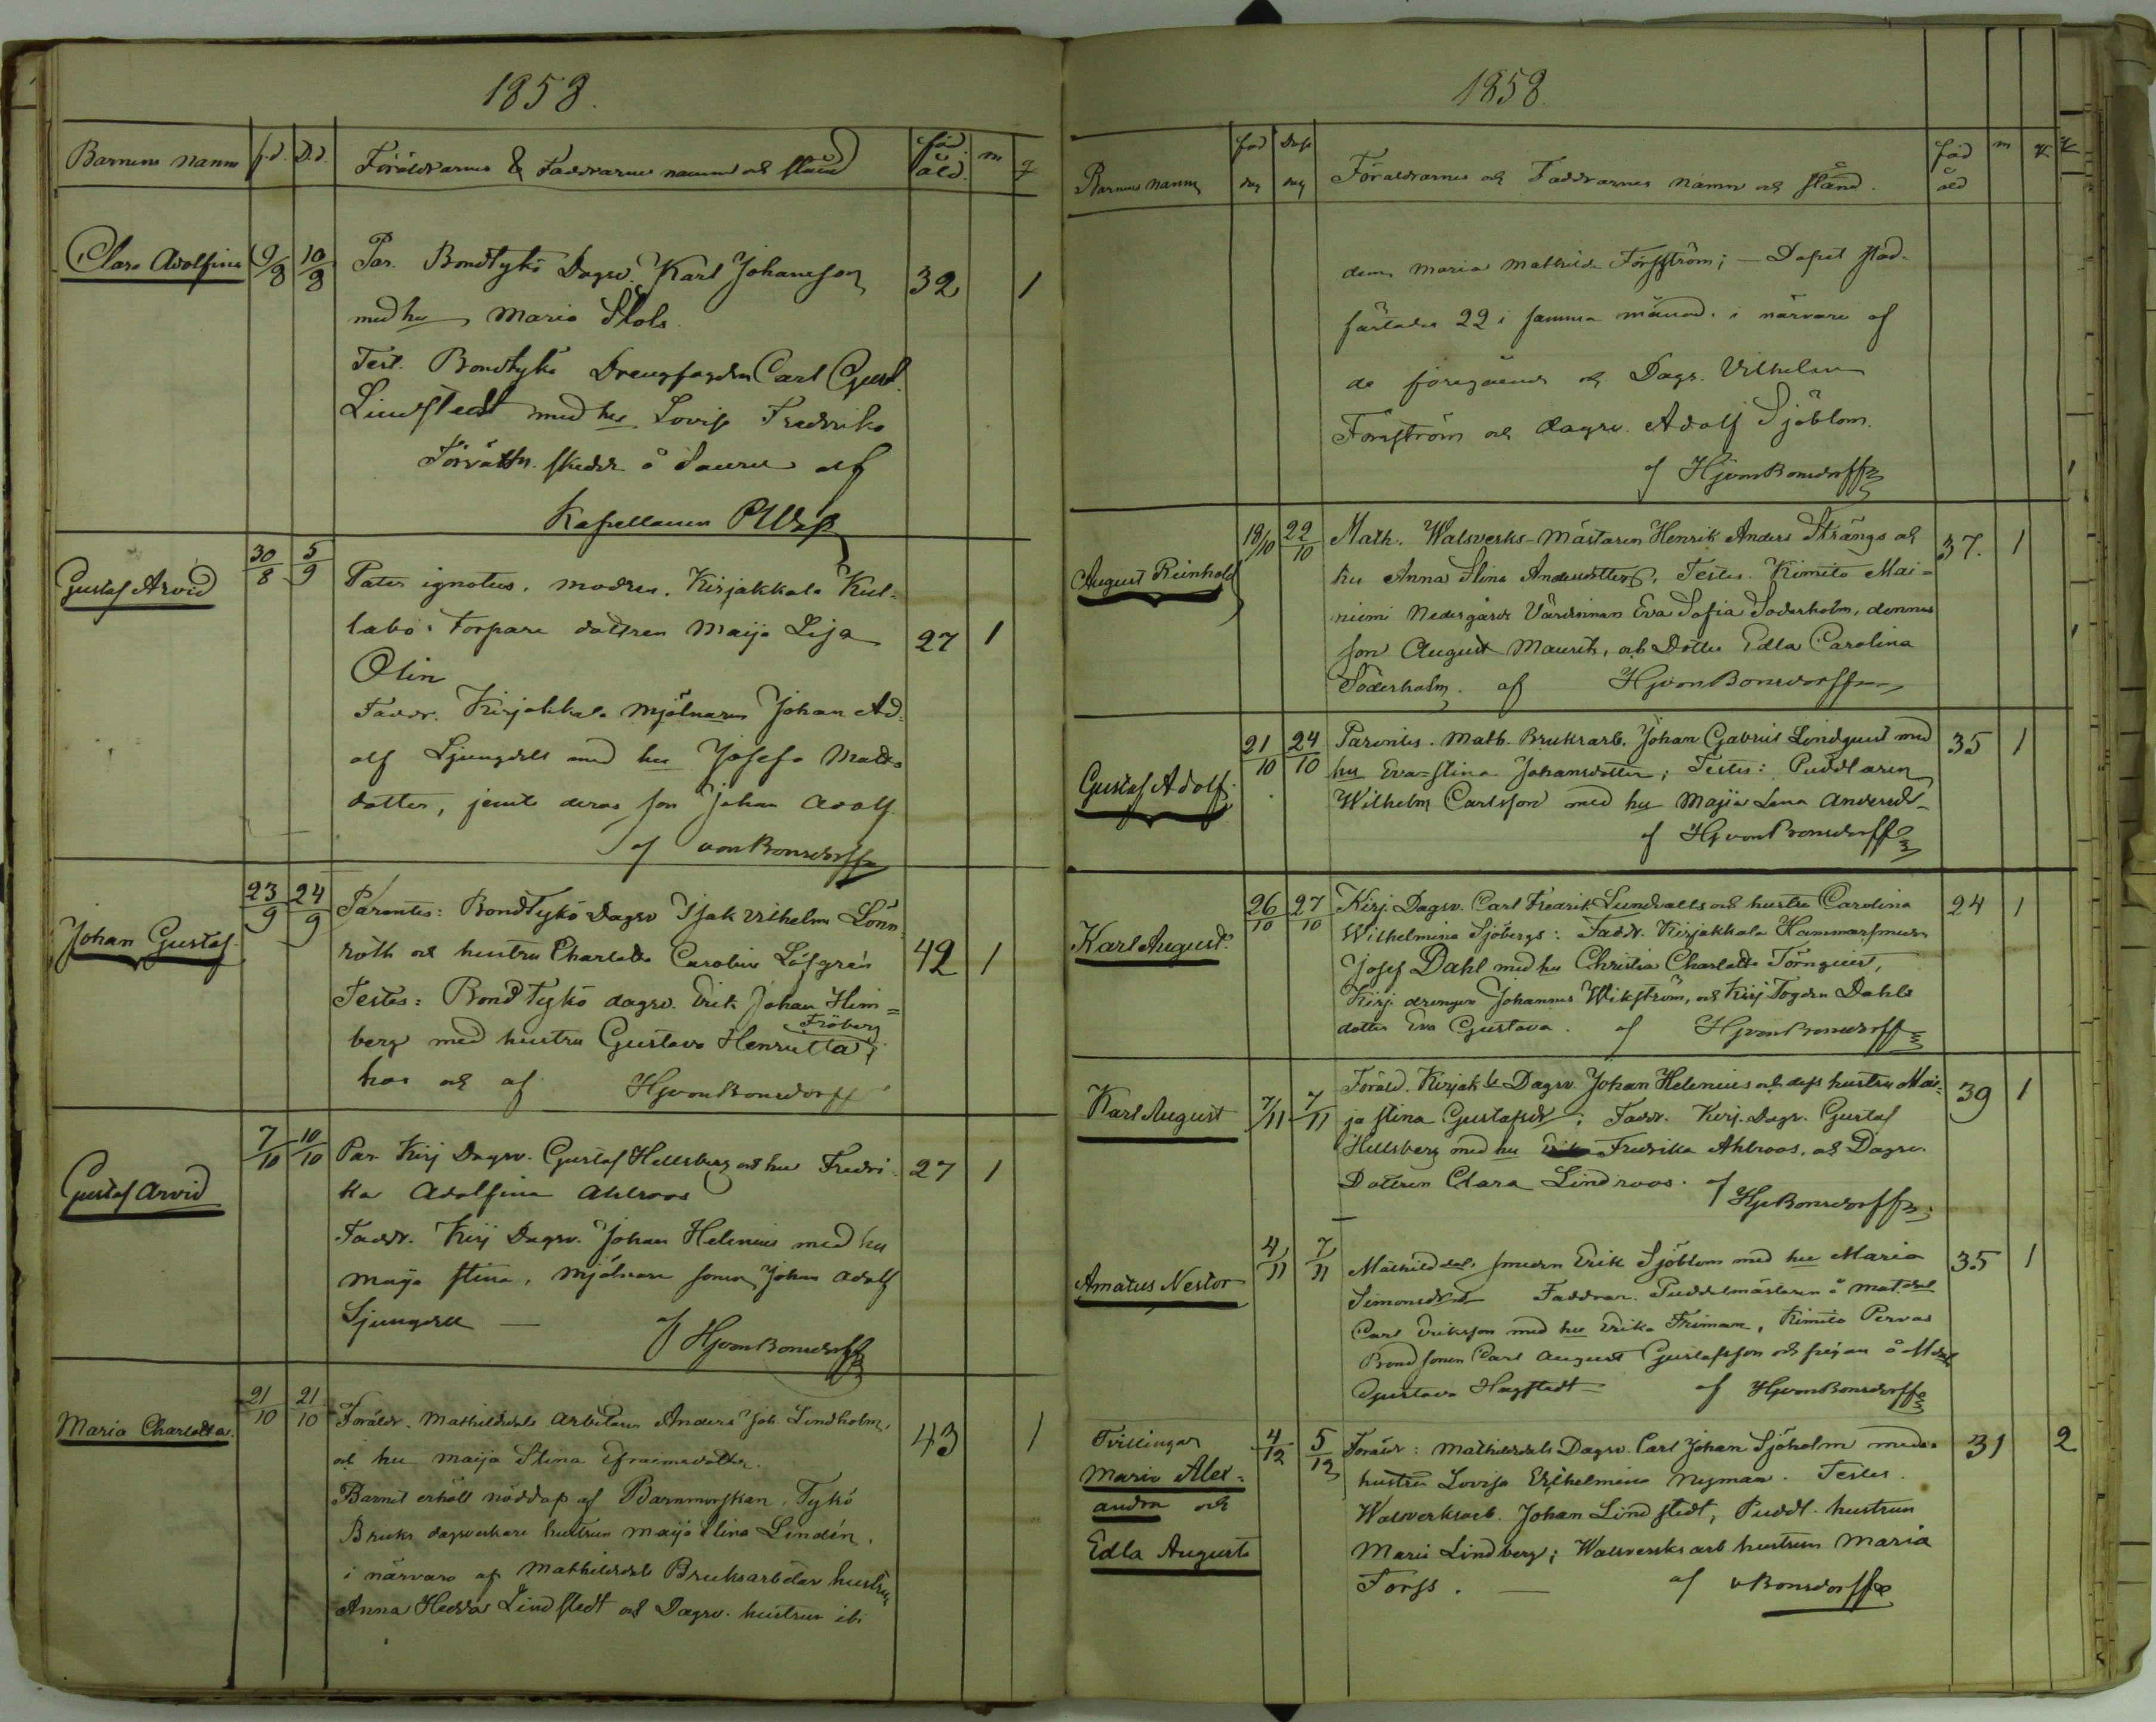 1858.
Barnens namn f.d. D.d. Föräldrarnes & Faddrarnes namn och stånd föd. åld. m q
Clara Adolfina 9/8 10/8 Par. Bondtykö Dagsv. Karl Johansson 32 1
med hu Maria Stols.
Test. Bondtykö Drengfogden Carl Gust.
Lindstedt med hu Lovisa Fredrika
Förrättn. skedde å Sauru af
Kapellanen
Gustaf Arvid 30/8 5/9 Pater ignotus, modren, Kirjakkala Kul-
labo Torpare dottren Maija Lisa 27 1
Olin
Faddr. Kirjakkala Mjölnaren Johan Ad-
olf Ljungdell med hu Josefa Matts
dotter, jemte deras son Johan Adolf
af von Bonsdorff
Johan Gustaf. 23/9 24/9 Parentes: BondTykö Dagsv Isak Vilhelm Lönn
roth och hustru Charlotta Carolina Löfgrén 42 1
Testes: BondTykö dagsv. Erik Johan Him=
Fröberg
berg med hustru Gustava Henrietta;
hos och af HJvonBonsdorff
Gustaf Arvid 7/10 10/10 Par. Kirj Dagsv. Gustaf Hellsberg och hu Fredri- 27 1
ka Adolfina Ahlroos
Faddr. Kirj Dagsv. Johan Helenius med hu
Maija Stina, Mjölnare sonen Johan Adolf
Ljungdell — af HJvonBonsdorff
Maria Charlotta. 21/10 21/10 Föräldr. Mathildedals arbetaren Anders Joh. Lindholm, 43 1
och hu Maija Stina Efraimsdotter.
Barnet erhöll nöddop af Barnmorskan, Tykö
Bruks dagsverkare hustrun Maija Stina Lindén,
i närvaro af Mathildedals Bruksarbetar hustrun
Anna Hedda Lindstedt och Dagsv. hustrun ibi
1858
Barnens namn föd dag Döpt dag Föräldrarnes och Faddrarnes namn och stånd. föd åld m K K
dem Maria Mathilda Forsström; — Dopet stad-
fästades 22 i samma månad. i närvaro af
de föregående och Dagsv. Vilhelm
Forsström och dagsv. Adolf Sjöblom.
af HJvonBonsdorff
August Reinhold 18/10 22/10 Math. Walsverks-Mästaren Henrik Anders Strängs och 37. 1
hu Anna Stina Andersdotter, Testes. Kimito Mai=
niemi Nedergårds Värdinnan Eva Sofia Söderholm, dennes
son August Maurits, och Dotter Edla Carolina
Söderholm. af HJvonBonsdorff
Gustaf Adolf. 21/10 24/10 Parentes. Math. Bruksarb. Johan Gabriel Lindqvist med 35 1
hu Eva-Stina Johansdotter; Testes: Puddlaren
Wilhelm Carlsson med hu Majia Lena Andersdr
af HJvonBonsdorff
Karl August. 26/10 27/10 Kirj. Dagsv. Carl Fredrik Lundvalls och hustru Carolina 24 1
Wilhelmina Sjöbergs: Faddr. Kirjakkala Hammarsmeden
Josef Dahl med hu Christina Charlotta Törnqvist,
Kirj. drengen Johannes Wikström, och Kirj. Fogden Dahls
dotter Eva Gustava. af HJvonBonsdorff
Karl August 7/11 7/11 Föräld. Kirjak. Dagsv. Johan Helenius och dess hustru Mai- 39 1
ja Stina Gustafsdr; Faddr. Kirj. Dagsv. Gustaf
Hellsberg med hu Fredrika Ahlroos, och Dagsv.
Dottren Clara Lindroos. af HJvBonsdorff
Amatus Nestor 4/11 7/11 Mathilddal. smeden Erik Sjöblom med hu Maria 35 1
Simonsdr Faddrar. Puddelmästaren å Mat.dal
Carl Eriksson med hu Erika Friman, Kimito Pervas
Bondsonen Carl August Gustafsson och pigan å Mdal
Gustava Hagstedt — af HJvonBonsdorff
Tvillingar 4/12 5/12 Föräldr: Mathildedals Dagsv. Carl Johan Sjöholm med 31 2
Maria Alex= hustru Lovisa Vilhelmina Nyman. Testes.
andra och Walsverksarb. Johan Lindstedt, Puddl. hustrun
Edla Augusta Maria Lindberg; Walsverksarb hustrun Maria
Forss. — af vBonsdorff